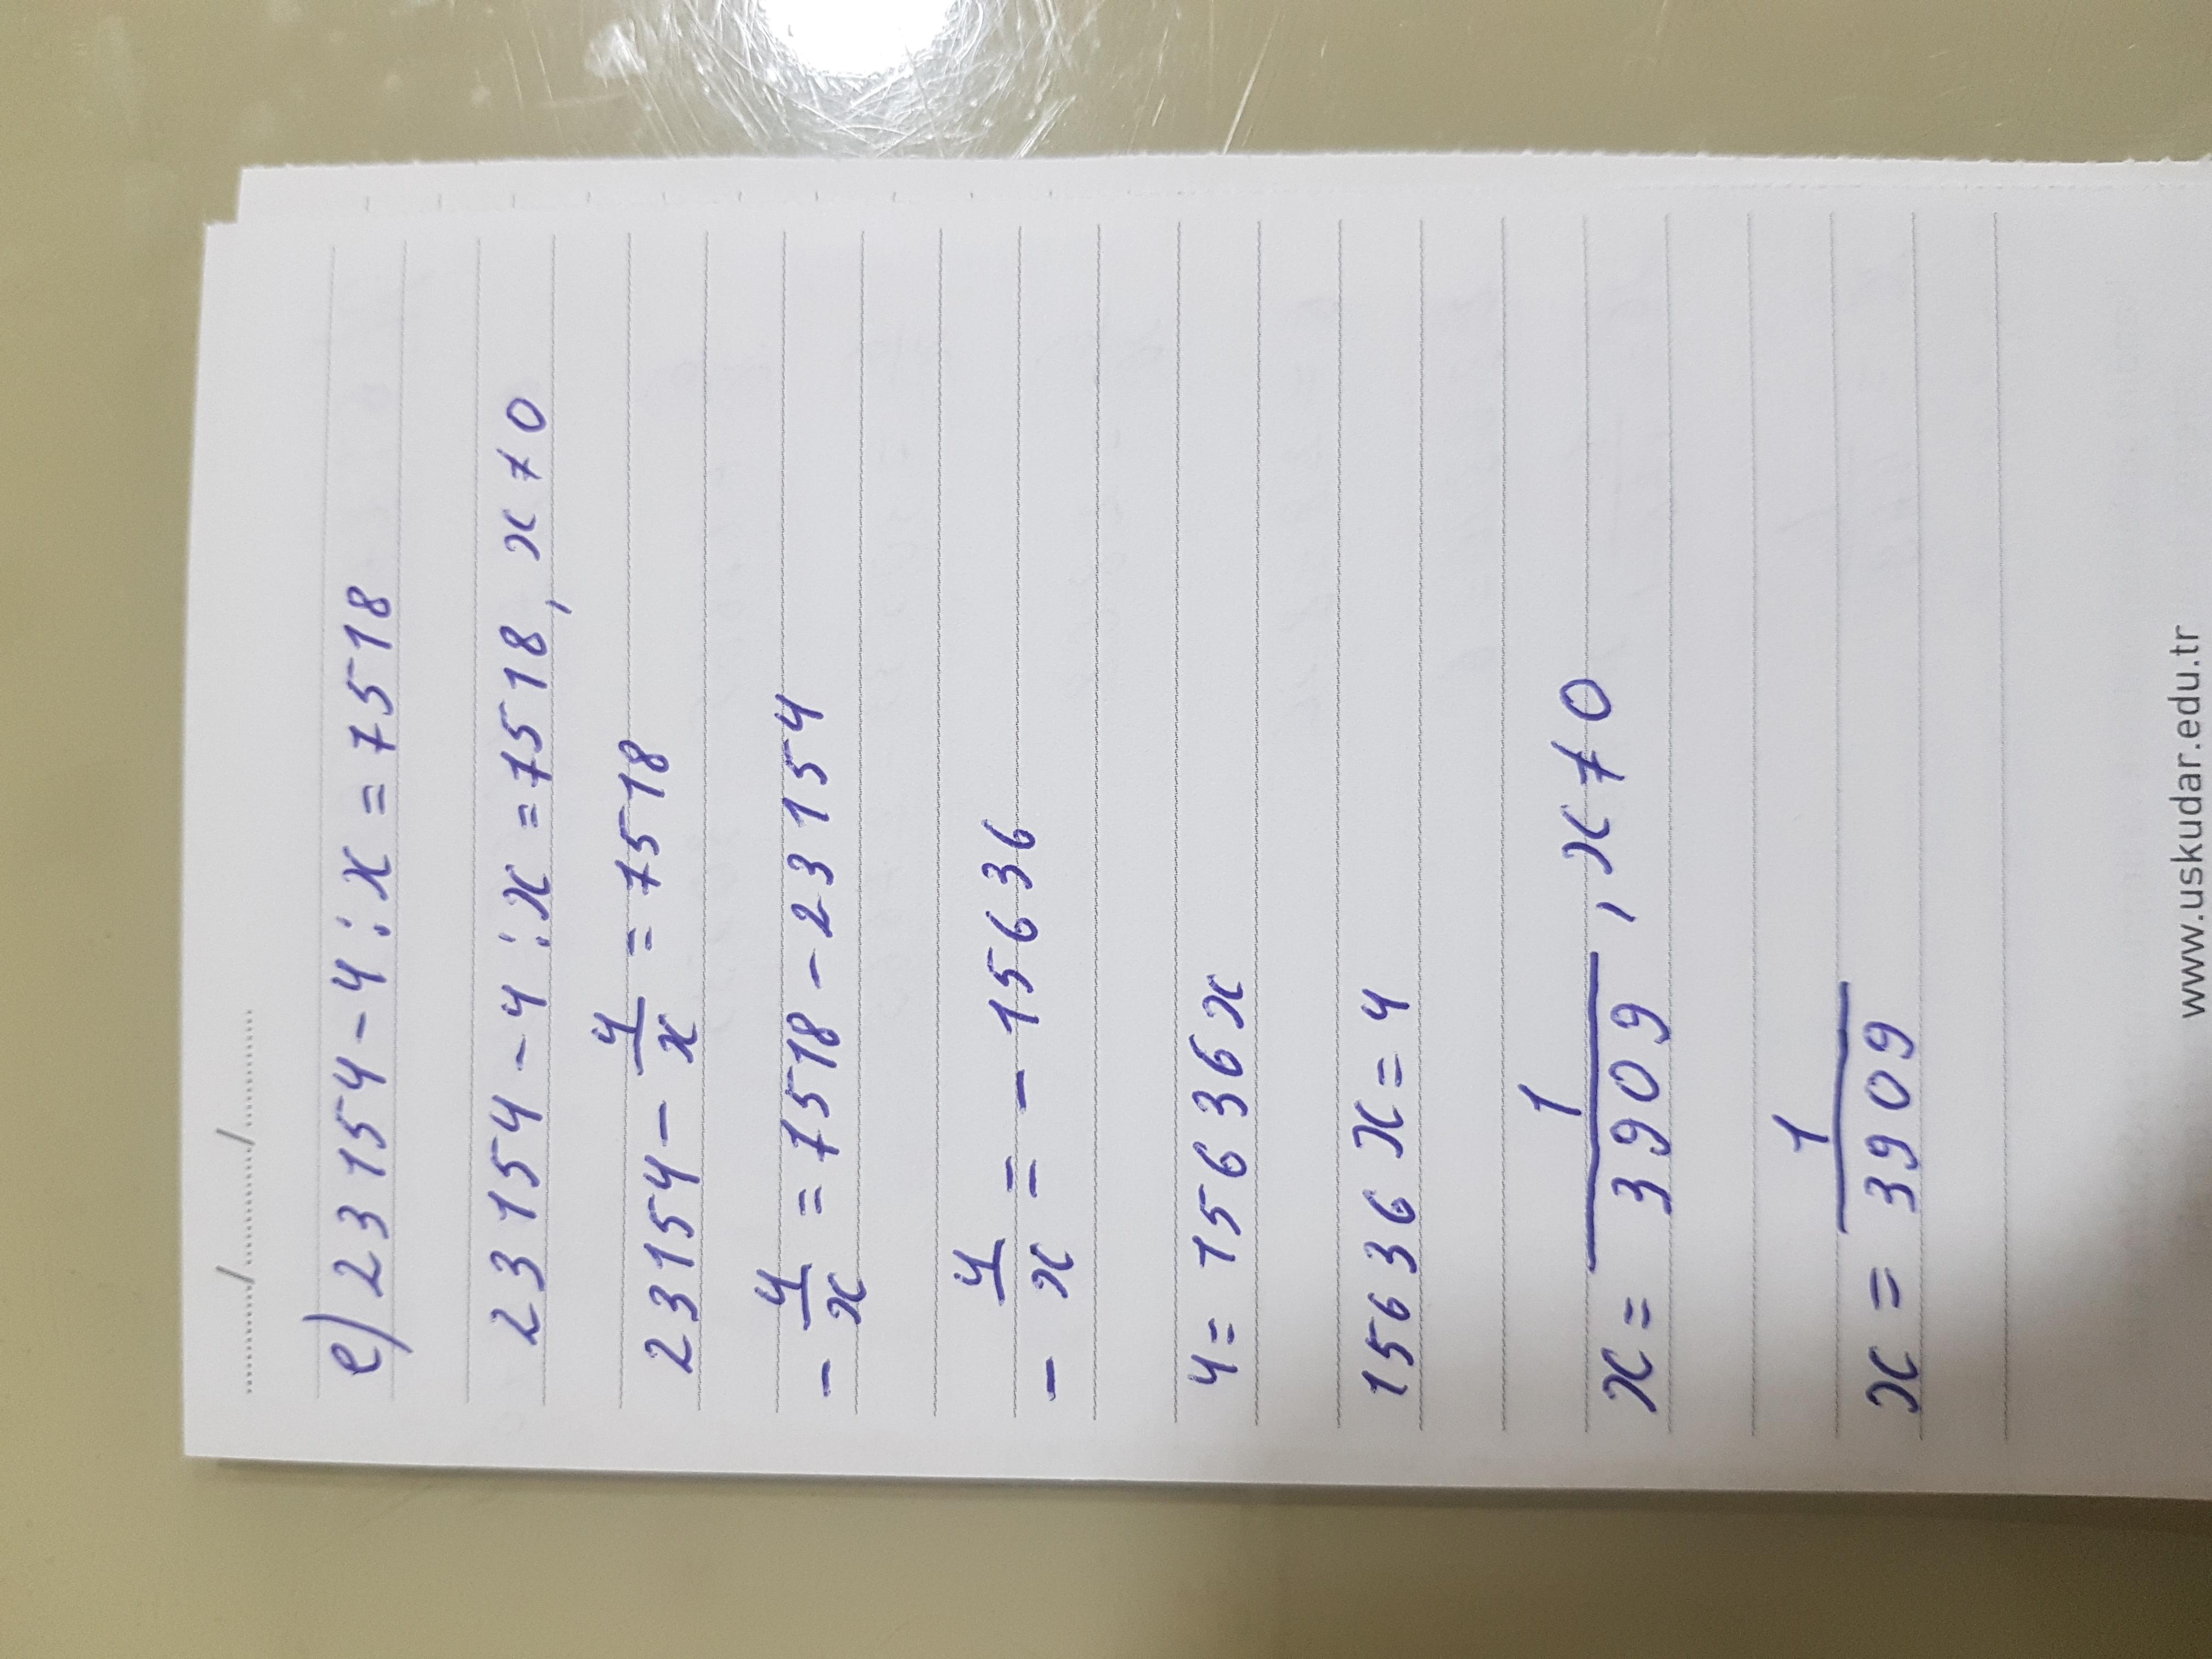 ....../....../......
e) 23154-4:x=7518
23154-4:x=7518, x≠0
23154-4/x=7518
-4/x=7518-23154
-4/x=-15636
4=15636x
15636x=4
x=1/3909, x≠0
x=1/3909
www.uskudar.edu.tr